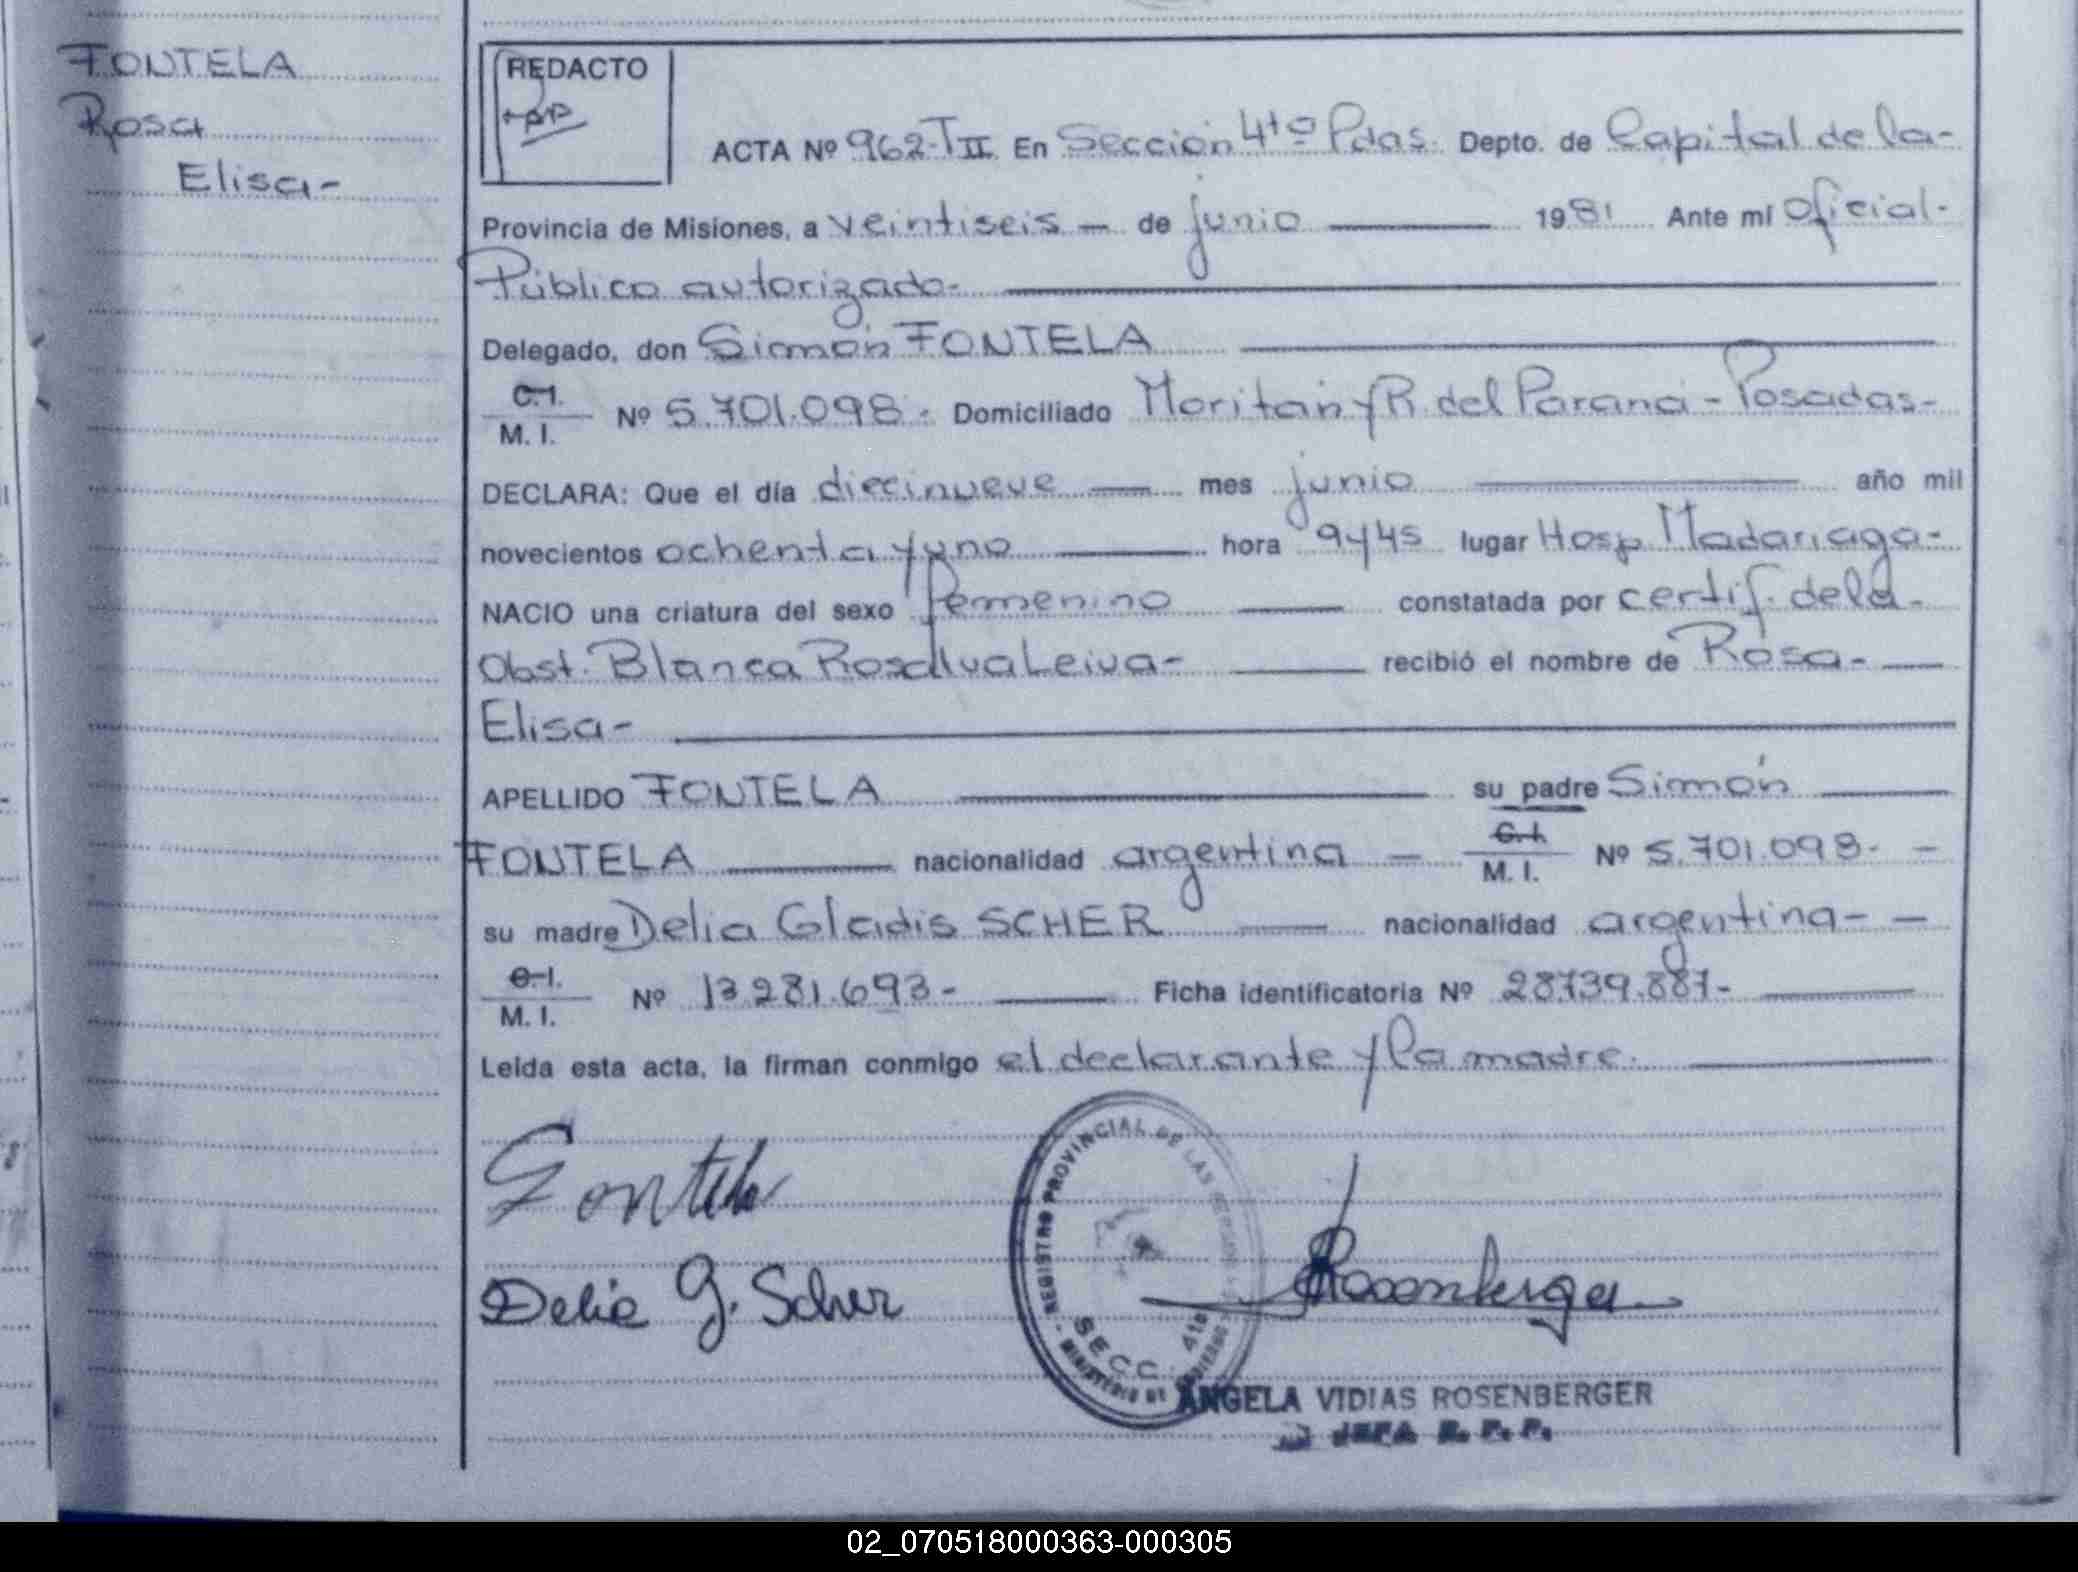 FONTELA
Rosa
Elisa-
REDACTO
ACTA Nº 962-TII En Sección 4tª Pdas. Depto. de Capital de la-
Provincia de Misiones, a veintiseis — de junio — 1981 Ante mí Oficial-
Público autorizado-
Delegado, don Simón FONTELA
C.I.
M. I. Nº 5.701.098.- Domiciliado Moritán y R. del Paraná - Posadas-
DECLARA: Que el día diecinueve — mes junio — año mil
novecientos ochenta y uno — hora 9 y 45 lugar Hosp Madariaga-
NACIO una criatura del sexo femenino — constatada por certif. de la-
Obst. Blanca Rosalva Leiva- — recibió el nombre de Rosa-
Elisa-
APELLIDO FONTELA — su padre Simón
FONTELA — nacionalidad argentina — C.I.
M. I. Nº 5.701.098- -
su madre Delia Gladis SCHER — nacionalidad argentina- -
C.I.
M. I. Nº 13.281.693- — Ficha identificatoria Nº 28739.887-
Leída esta acta, la firman conmigo el declarante y la madre.
Fontela
Delia G. Scher
Rosenberger
REGISTRO PROVINCIAL DE LAS
SECC. 4ta
MINISTERIO DE GOBIERNO
ANGELA VIDIAS ROSENBERGER
JEFA R. P. P.
02_070518000363-000305